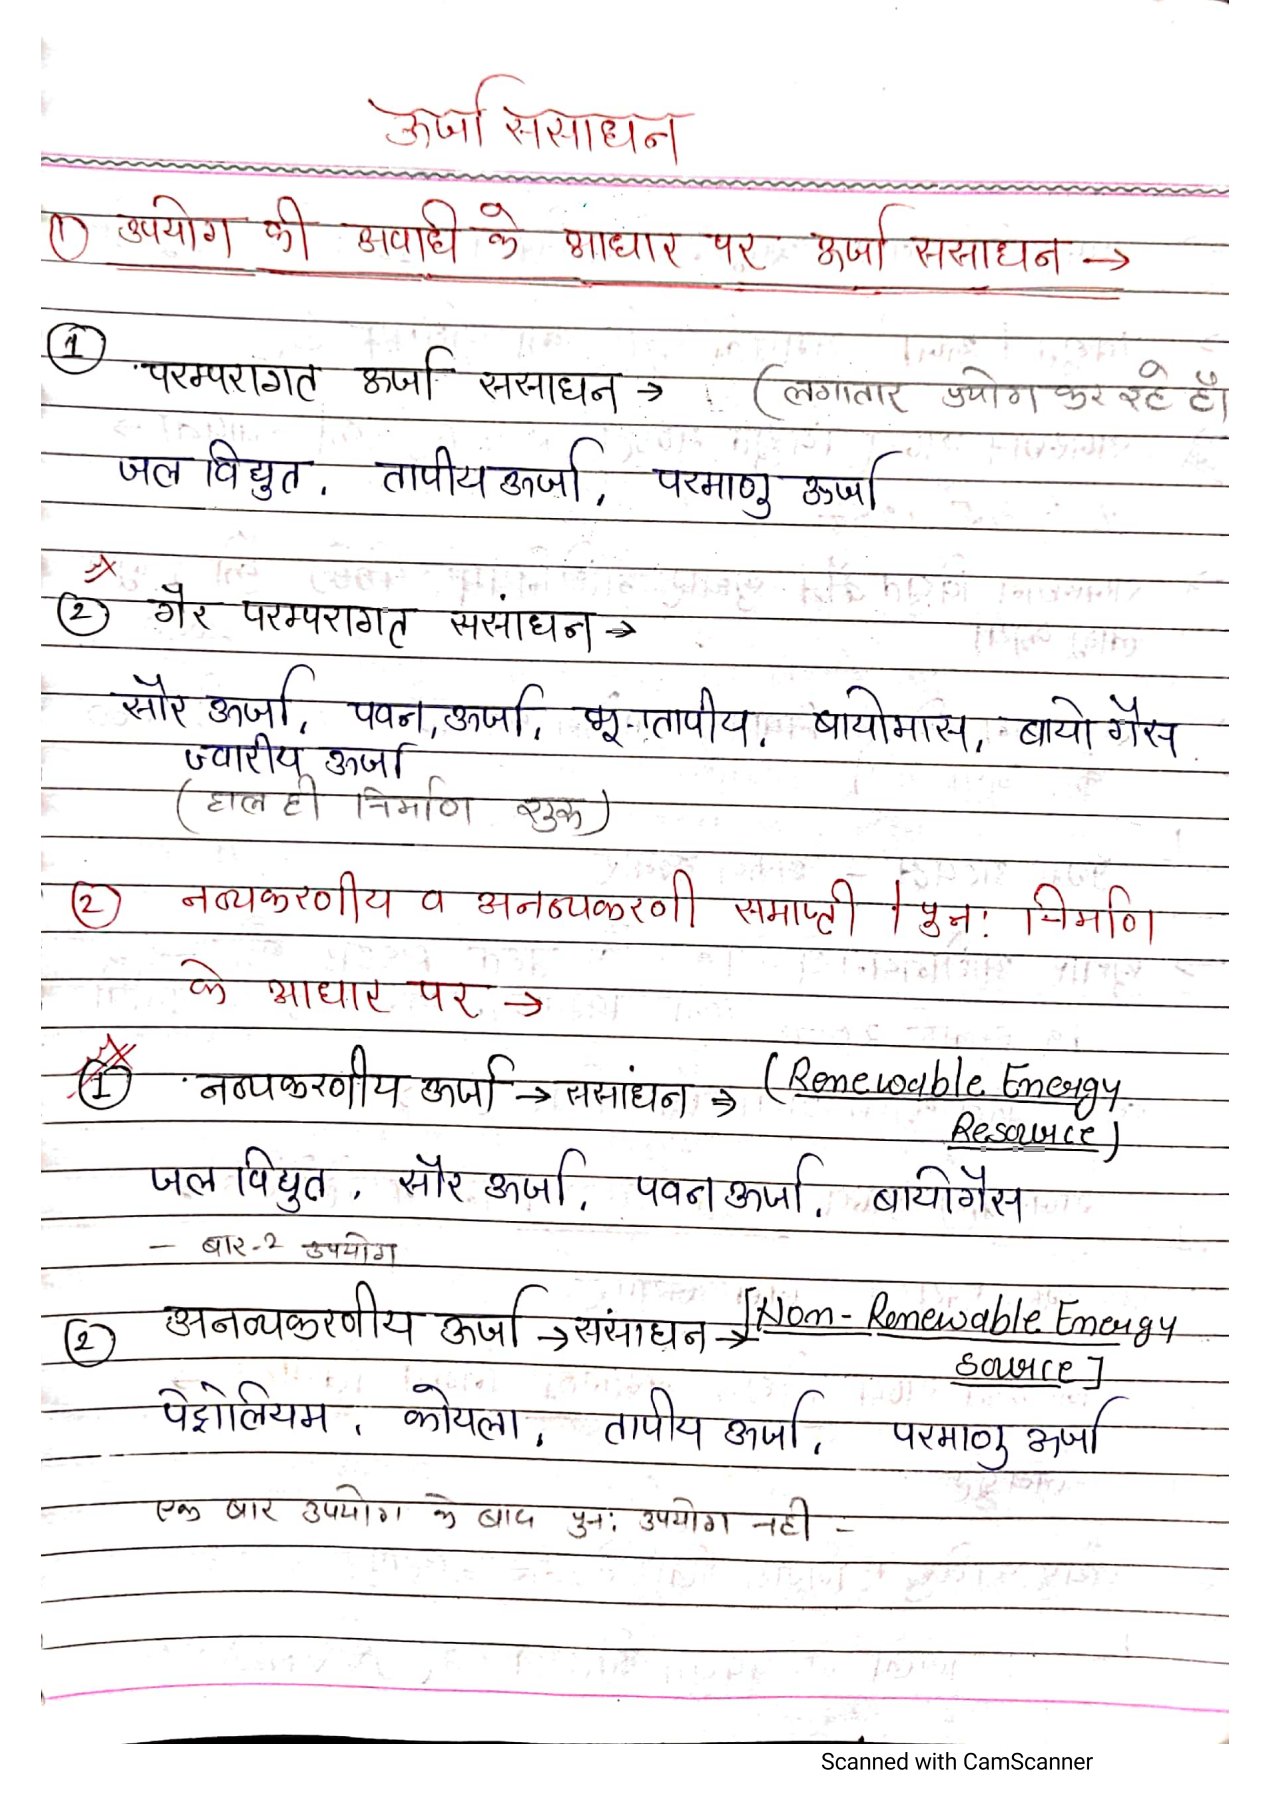 ऊर्जा ससाधन
(1) उपयोग की अवधि के आधार पर ऊर्जा ससाधन →
(1) परम्परागत ऊर्जा ससाधन → (लगातार प्रयोग कर रहे है)
जल विद्युत, तापीय ऊर्जा, परमाणु ऊर्जा
(2) गैर परम्परागत ससांधन →
सौर ऊर्जा, पवन, ऊर्जा, भू-तापीय, बायोमास, बायो गैस
ज्वारीय ऊर्जा
(हाल ही निर्माण शुरू)
(2) नव्यकरणीय व अनव्यकरणी समाप्ती / पुन: निर्माण
के आधार पर →
(1) नव्यकरणीय ऊर्जा → ससांधन → (Renewable Energy
Resource)
जल विद्युत, सौर ऊर्जा, पवन ऊर्जा, बायोगैस
- बार-2 उपयोग
(2) अनव्यकरणीय ऊर्जा → संसाधन → [Non-Renewable Energy
Source]
पेट्रोलियम, कोयला, तापीय ऊर्जा, परमाणु ऊर्जा
एक बार उपयोग के बाद पुन: उपयोग नही -
Scanned with CamScanner